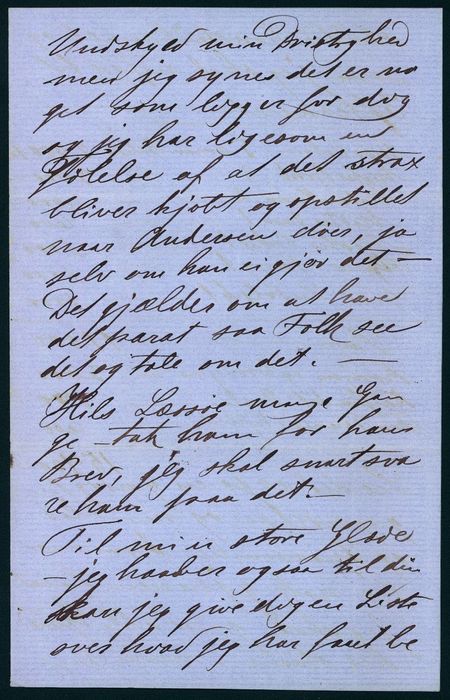 Undskyld min Dristighed
men jeg synes det er no
get som ligger for dig
og jeg har ligesom en
Følelse af at det strax
bliver kjøbt og opstillet
naar Andersen døer, ja
selv om han ei gjør det —
Det gjælder om at have
det parat saa Folk see
det og tale om det. —
Hils Læssøe mange Gan
ge – tak ham for hans
Brev, jeg skal snart sva
re ham paa det. –
Til min store Glæde
– jeg haaber ogsaa til din
kan jeg give dig en Liste
over hvad jeg har faaet be